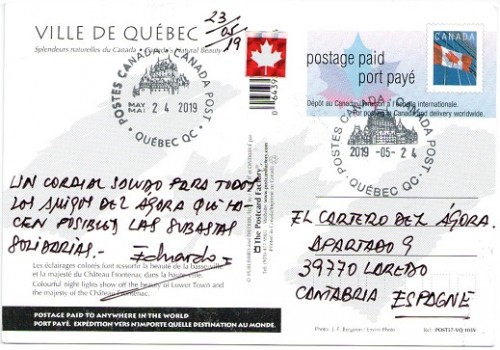 VILLE DE QUÉBEC
Splendeurs naturelles du Canada • Canada's Natural Beauty
23/05/19
POSTES CANADA • CANADA POST
MAY
MAI 24 2019
• QUÉBEC QC •
066439
postage paid
port payé
CANADA
Dépôt au Canada, livraison à l'échelle internationale.
For posting in Canada and delivery worldwide.
POSTES CANADA • CANADA POST
2019 -05- 24
• QUÉBEC QC •
UN CORDIAL SALUDO PARA TODOS
LOS AMIGOS DEL AGORA QUE HA-
CEN POSIBLES LAS SUBASTAS
SOLIDARIAS.-
Eduardo
The Postcard Factory
EL CARTERO DEL ÁGORA.
APARTADO 9
39770 LAREDO
CANTABRIA ESPAGNE
Les éclairages colorés font ressortir la beauté de la basse-ville
et la majesté du Château Frontenac dans la haute-ville.
Colourful night lights show off the beauty of Lower Town and
the majesty of the Château Frontenac.
POSTAGE PAID TO ANYWHERE IN THE WORLD
PORT PAYÉ. EXPÉDITION VERS N'IMPORTE QUELLE DESTINATION AU MONDE.